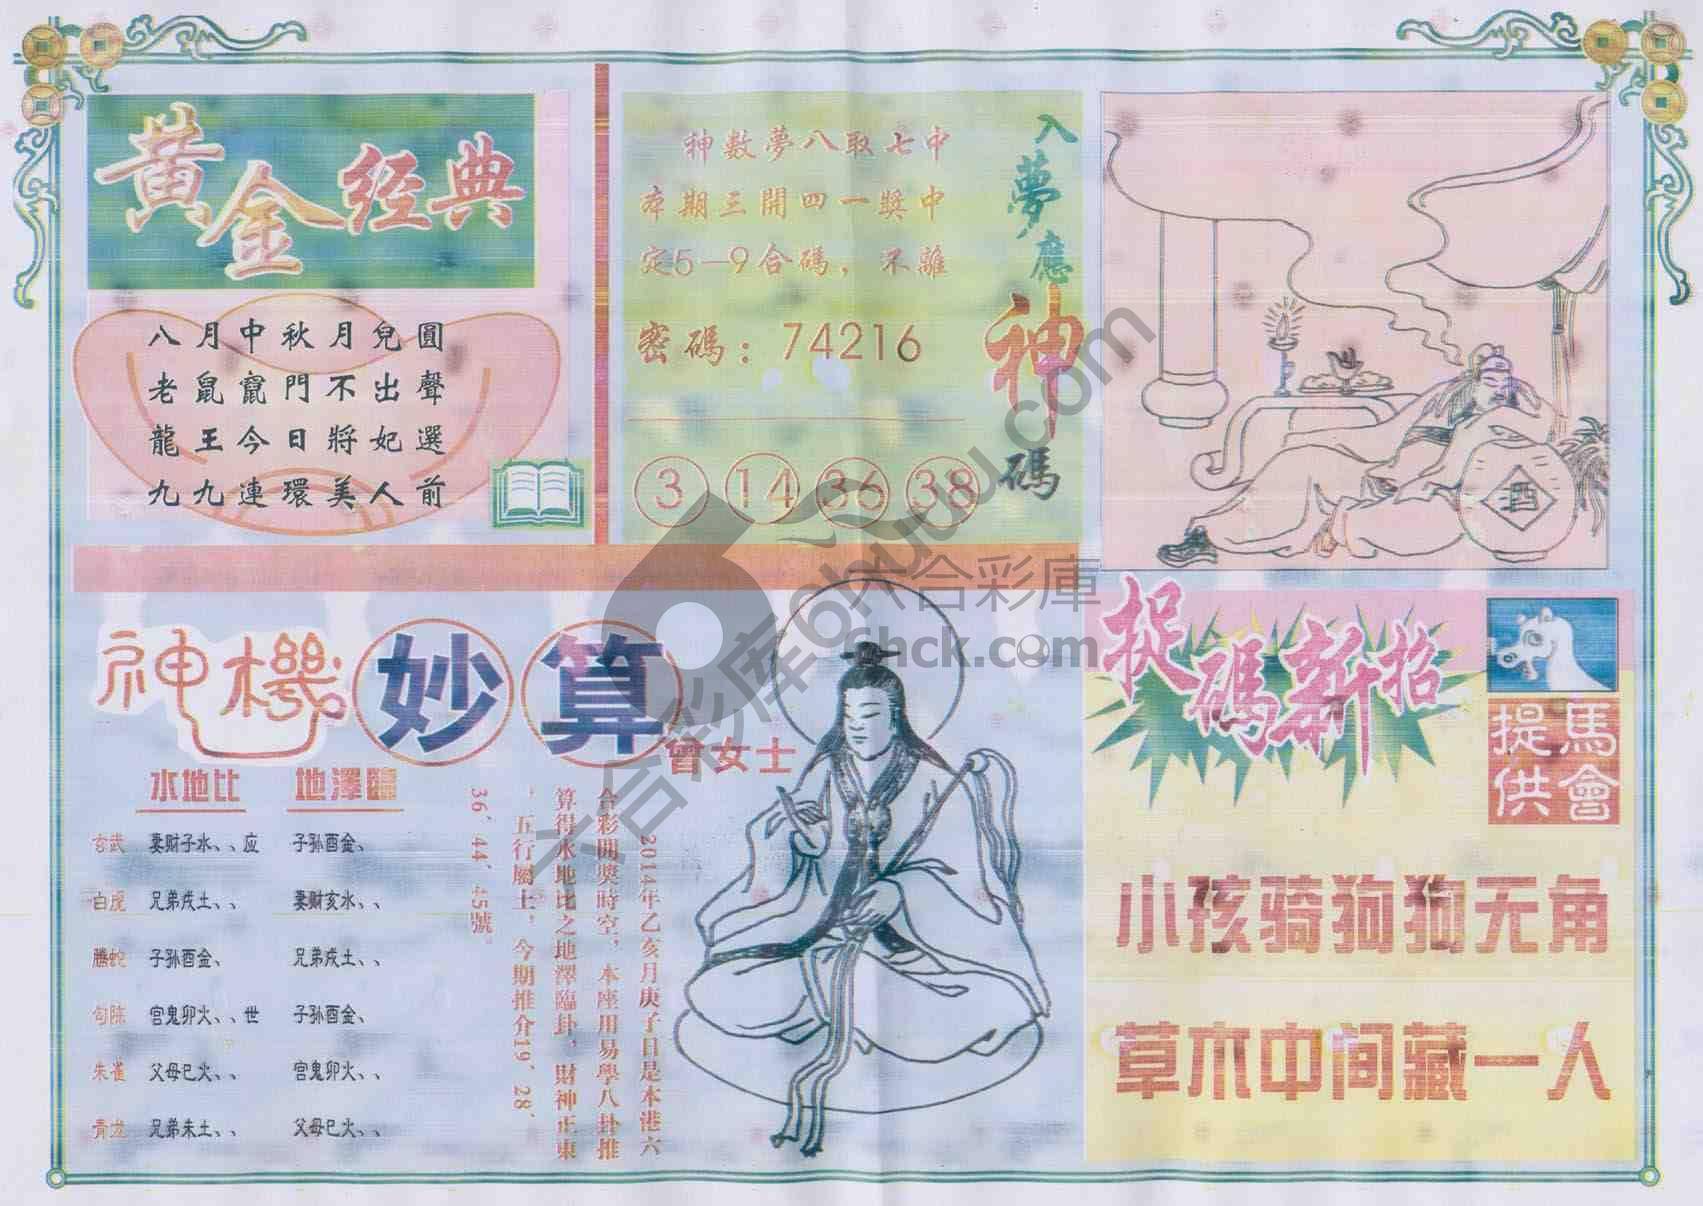 黄金经典
八月中秋月兒圓
老鼠竄門不出聲
龍王今日將妃選
九九連環美人前
神數夢八取七中
本期三開四一獎中
定5—9合碼，不離
密碼：74216
3 14 36 38
入夢應神碼
酒
神機妙算
曾女士
水地比 地澤臨
玄武 妻财子水、、应 子孙酉金、
白虎 兄弟戌土、、 妻财亥水、、
螣蛇 子孙酉金、 兄弟戌土、、
勾陈 官鬼卯火、、世 子孙酉金、
朱雀 父母巳火、、 官鬼卯火、、
青龙 兄弟未土、、 父母巳火、、
2014年乙亥月庚子日是本港六
合彩開獎時空，本座用易學八卦推
算得水地比之地澤臨卦，財神正東
，五行屬土，今期推介19、28、
36、44、45號。
捉碼新招
馬會提供
小孩骑狗狗无角
草木中间藏一人
六合彩庫
6hck.com
六合彩库ohuuu.com